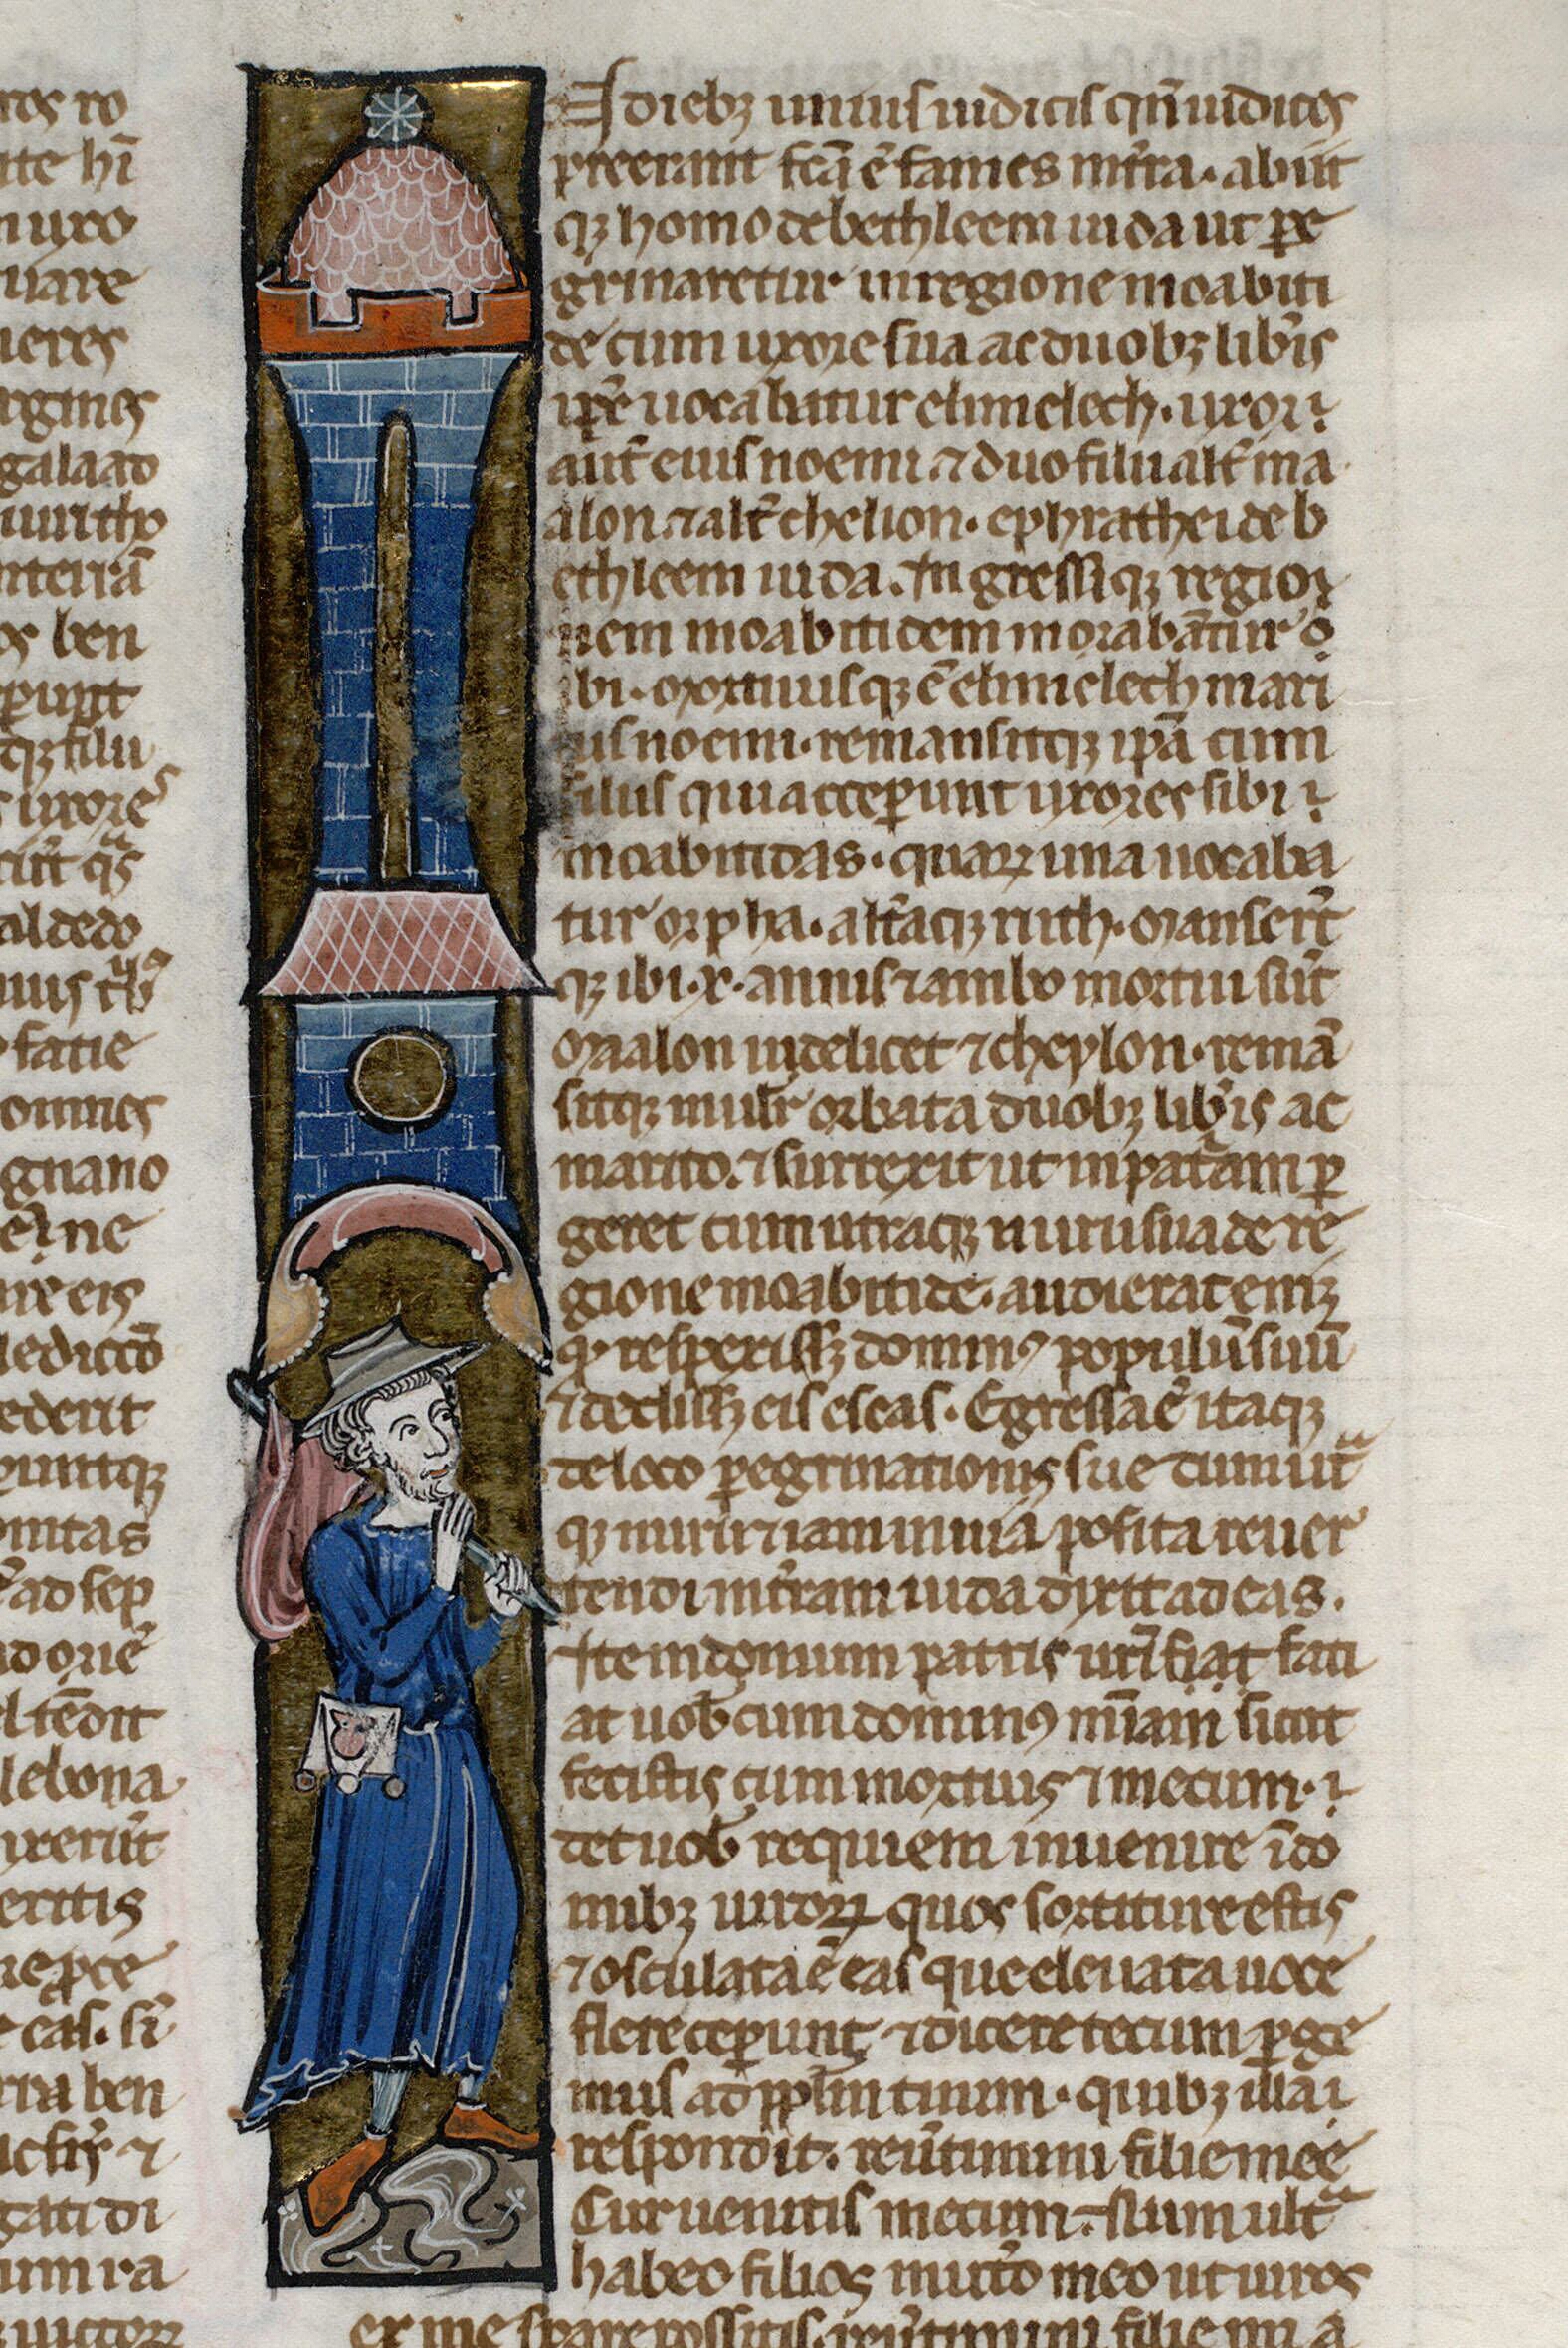 ros ro
ite hı̄
n uxo
uare
ueres
rgines
galaad
uuıthp
nterrā
os ben
perunt
tqꝫ filii
s uxorē
aldedo
fatie
omnes
gnano
eine
are eis
ledictō
ederit
puntqꝫ
nitas
ad sep
ad oriē
el tēdit
lebona
ixerūt
eritis
eas. si
rra ben
gati di
um ra
uictoꝝ
In diebꝫ unius iudicis qn̄ iudices
preerant fcā ē fames in tr̄ra. abiit
qꝫ homo de bethleem iuda ut ꝑe
grinaretur in regione moabiti
de cum uxore sua ac duobꝫ lib̄is
ip̄e uocabatur elimelech. uxor
aut̄ eius noemi ⁊ duo filii alt̄ ma
alon ⁊ alt̄ chelion. ephrathei de b
ethleem iuda. Ingressiqꝫ regio
nem moabitidem morabātur
ibi. Mortuusqꝫ ē elimelech mari
tus noemi. remansitqꝫ ip̄a cum
filiis qui acceperunt uxores sibi
moabitidas. quaꝝ una uocaba
tur orpha. alt̄aqꝫ ruth. Manser̄t
qꝫ ibi .x. annis ⁊ ambo mortui sūt
Maalon uidelicet ⁊ cheylon. remā
sitqꝫ mulr̄ orbata duobꝫ lib̄is ac
marito. ⁊ surrexit ut in patͣam ꝑ
geret cum utraqꝫ nuru sua de re
gione moabitide. audierat enī
qꝫ respexissꝫ dominꝰ populū suū
⁊ dedissꝫ eis escas. Egressa ē itaqꝫ
de loco ꝑegrinationis sue cum utͣ
qꝫ nuru ⁊ iam in uia posita reuer
tendi in tr̄ram iuda dyxit ad eas.
Ite in domum patris ur̄i fiat faci
at uob̄ cum dominꝰ mīam sicut
fecistis cum mortuis ⁊ mecum.
det uob̄ requiem inuenire ī do
mibꝫ uiroꝝ quos sortiture estis
⁊ osculata ē eas que eleuata uoce
flere ceperunt ⁊ dicere tecum ꝑge
mus ad pp̄lm tuum. quibꝫ illa
respondit. reūtimini filie mee
Cur uenitis mecum. Num ultͣ
habeo filios in utͦo meo ut uiros
ex me sꝑare possitis. reūtimini filie mi a